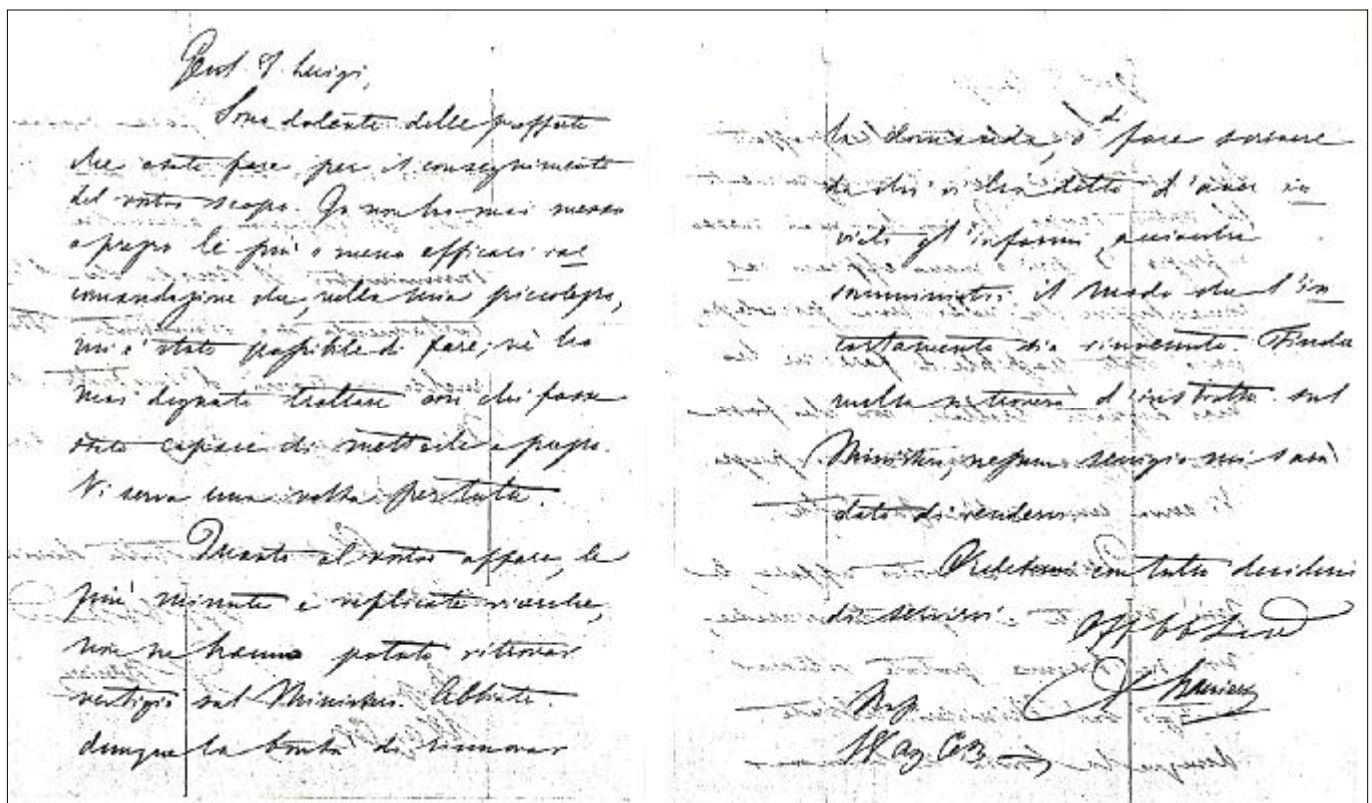 Gent. D. Luigi,
Sono dolente delle profferte
che osate fare per il conseguimento
del vostro scopo. Io non ho mai messo
a prezzo le più o meno efficaci rac
comandazione che, nella mia piccolezza,
mi è stato possibile di fare; nè ho
mai degnato trattare con chi fosse
stato capace di metterle a prezzo.
Vi serva una volta per tutte.
Quanto al vostro affare, le
più minute e replicate ricerche,
non ne hanno potuto ritrovar
vestigio nel Ministero. Abbiate
dunque la bontà di rinnovar
la domanda, o di fare scrivere
da chi vi ha detto d'aver in
viato gl'informi, acciocchè
somministri il modo che l'in
cartamento sia rinvenuto. Finchè
nulla si troverà d'istratto nel
Ministero, nessun servigio mi sarà
dato di rendervi.
Credetemi con tutto desiderio
di servirvi.
Nap.